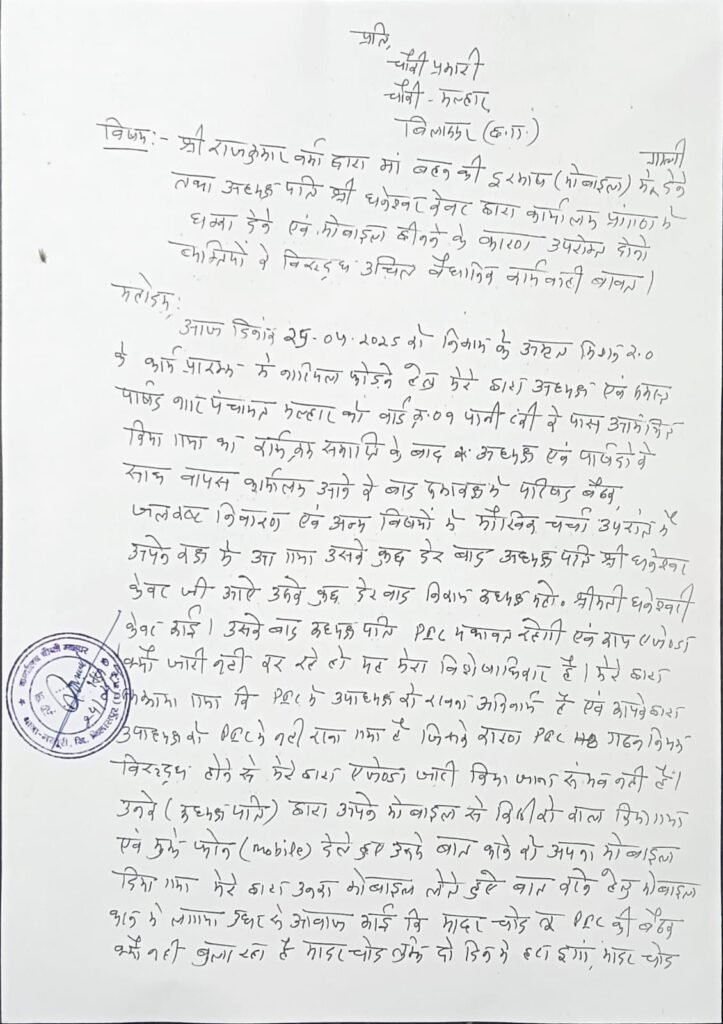 प्रति,
चौकी प्रभारी
चौकी - मल्हार
बिलासपुर (छ.ग.)
विषय:- श्री राजकुमार वर्मा द्वारा मां बहन की दूरभाष (मोबाइल) में गाली देने
तथा अध्यक्ष पति श्री धनेश्वर केवट द्वारा कार्यालय प्रांगण में
धमकी देने एवं मोबाइल छीनने के कारण उपरोक्त दोनो
व्यक्तियों के विरूद्ध उचित वैधानिक कार्यवाही बाबत।
महोदय,
आज दिनांक 2025 को निकाय के अमृत मिशन 2.0
के कार्य प्रारम्भ में नारियल फोड़ने हेतु मेरे द्वारा अध्यक्ष एवं समस्त
पार्षद नगर पंचायत मल्हार को वार्ड क्र. 01 पानी टंकी के पास आमंत्रित
किया गया था कार्यक्रम समाप्ति के बाद अध्यक्ष एवं पार्षदों के
साथ वापस कार्यालय आने के बाद सभाकक्ष में परिषद बैठक,
जलकष्ट निवारण एवं अन्य विषयों में मौखिक चर्चा उपरांत मैं
अपने कक्ष में आ गया उसके कुछ देर बाद अध्यक्ष पति श्री धनेश्वर
केवट जी आए उसके कुछ देर बाद निकाय अध्यक्ष महो. श्रीमती धनेश्वरी
केवट आई। उसके बाद अध्यक्ष पति PIC यथावत रहेगी एवं आप एजेण्डा
क्यों जारी नही कर रहे हो यह मेरा विशेषाधिकार है। मेरे द्वारा
गया कि PIC में उपाध्यक्ष को रखना अनिवार्य है एवं आपके द्वारा
उपाध्यक्ष को PIC में नही रखा गया है जिसके कारण PIC गठन नियम
विरूद्ध होने से मेरे द्वारा एजेण्डा जारी किया जाना संभव नही है।
उनके (अध्यक्ष पति) द्वारा अपने मोबाइल से किसी को काल किया गया
एवं मुझे फोन (mobile) देते हुए उनसे बात करने को अपना मोबाइल
दिया गया मेरे द्वारा उनका मोबाइल लेते हुए बात करने हेतु मोबाइल
कान में लगाया उधर से आवाज आई कि मादर चोद PIC की बैठक
क्यों नही बुला रहा है मादर चोद तुझे दो दिन में हटा दूंगा, मादर चोद